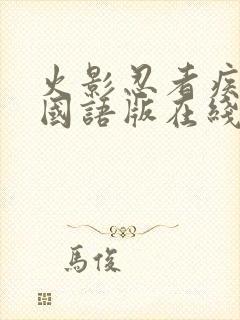 火影忍者疾
國語版在綫
馬俊